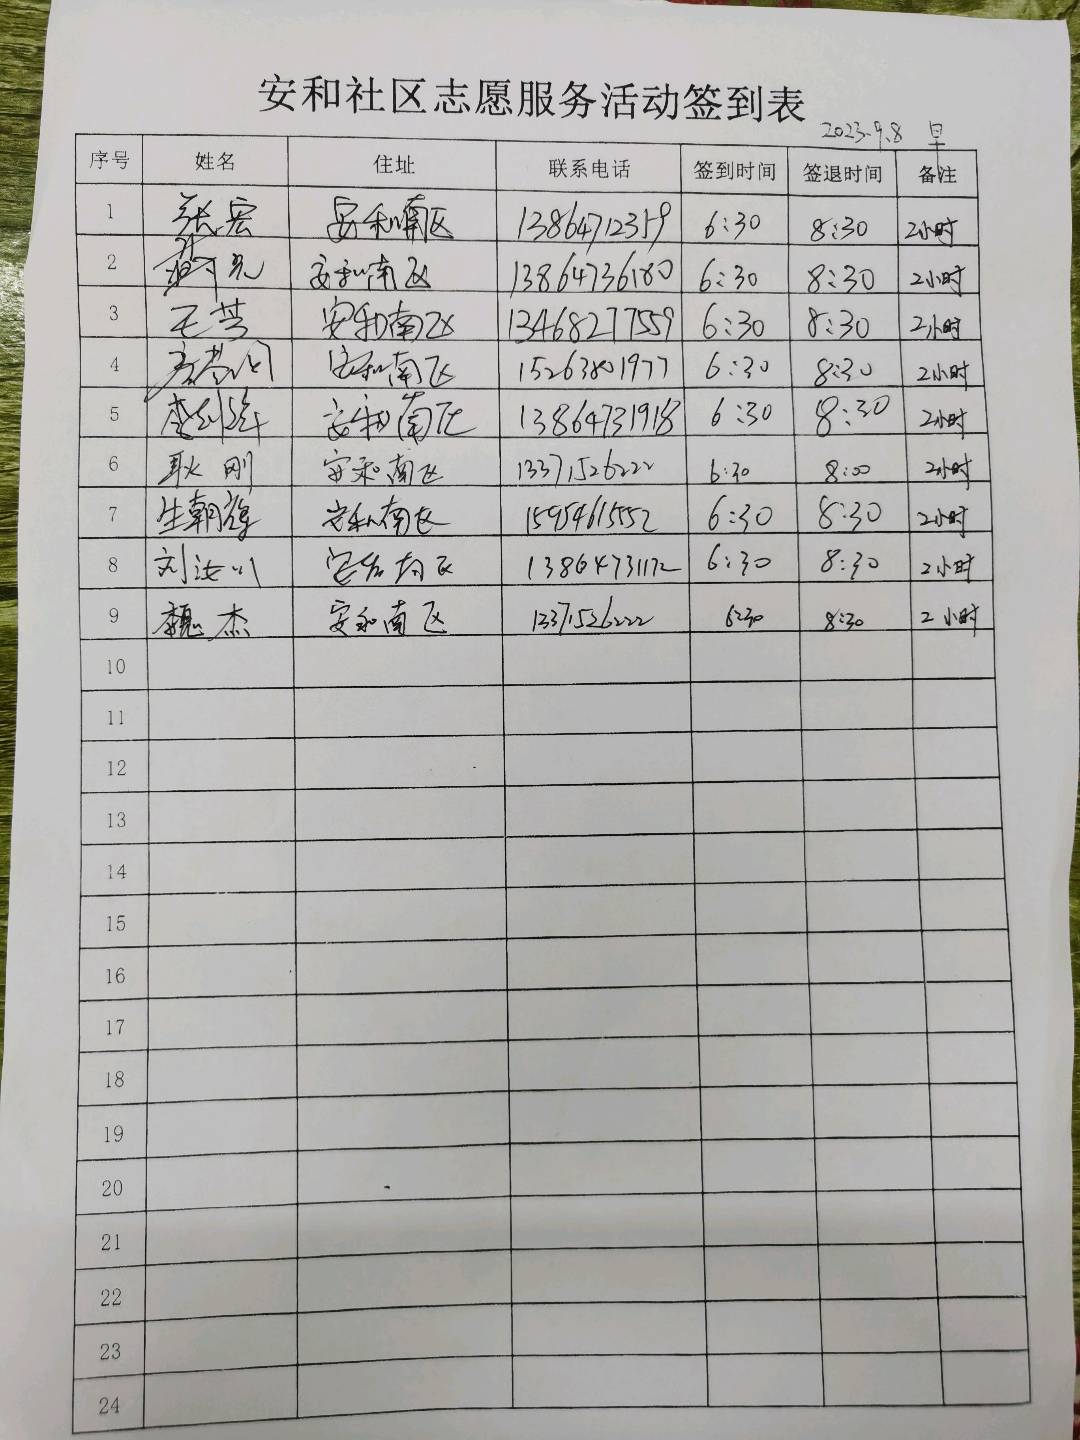 安和社区志愿服务活动签到表
2023.9.8 早
序号 姓名 住址 联系电话 签到时间 签退时间 备注
1 张宏 安和南区 13864712359 6:30 8:30 2小时
2 安和南区 13864736180 6:30 8:30 2小时
3 王芳 安和南区 13468277559 6:30 8:30 2小时
4 安和南区 15263801977 6:30 8:30 2小时
5 安和南区 13864731918 6:30 8:30 2小时
6 耿刚 安和南区 13371526222 6:30 8:00 2小时
7 生朝辉 安和南区 15954615552 6:30 8:30 2小时
8 刘汝川 安和南区 13864731172 6:30 8:30 2小时
9 魏杰 安和南区 13371526222 6:30 8:30 2小时
10
11
12
13
14
15
16
17
18
19
20
21
22
23
24